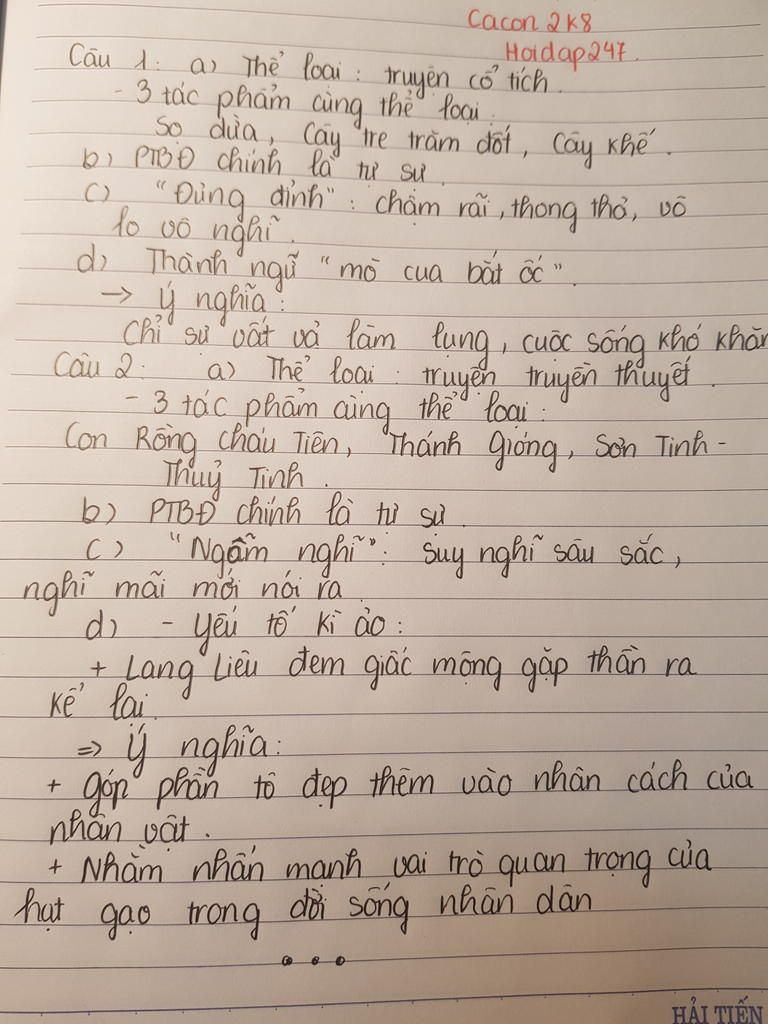 Cacon 2k8
Hoidap247.
Câu 1: a) Thể loại: truyện cổ tích.
- 3 tác phẩm cùng thể loại:
Sọ dừa, Cây tre trăm đốt, Cây khế.
b) PTBĐ chính là tự sự.
c) "Đủng đỉnh": chậm rãi, thong thả, vô
lo vô nghĩ.
d) Thành ngữ "mò cua bắt ốc".
→ Ý nghĩa:
Chỉ sự vất vả lam lụng, cuộc sống khó khăn
Câu 2: a) Thể loại: truyện truyền thuyết.
- 3 tác phẩm cùng thể loại:
Con Rồng cháu Tiên, Thánh Gióng, Sơn Tinh -
Thuỷ Tinh.
b) PTBĐ chính là tự sự
c) "Ngẫm nghĩ": suy nghĩ sâu sắc,
nghĩ mãi mới nói ra.
d) - Yếu tố kì ảo:
+ Lang Liêu đem giấc mộng gặp thần ra
kể lại.
=> Ý nghĩa:
+ Góp phần tô đẹp thêm vào nhân cách của
nhân vật.
+ Nhằm nhấn mạnh vai trò quan trọng của
hạt gạo trong đời sống nhân dân
...
HẢI TIẾN